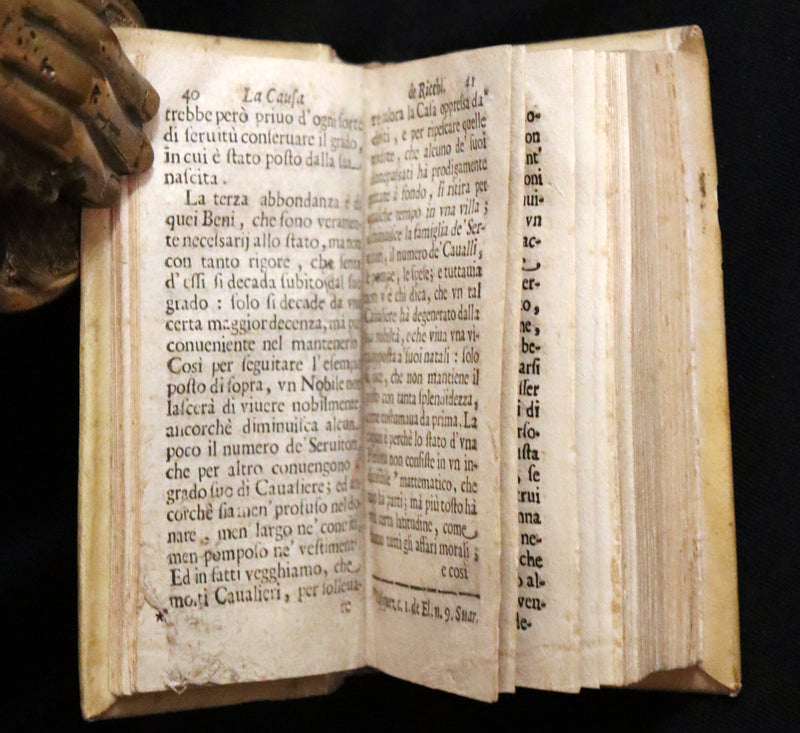 40 La Causa
trebbe però priuo d'ogni sorte
di seruitù conseruare il grado,
in cui è stato posto dalla sua
nascita.
La terza abbondanza è di
quei Beni, che sono veramen-
te necessarij allo stato, ma non
con tanto rigore, che senza
d'essi si decada subito dal suo
grado: solo si decade da vna
certa maggior decenza, má più
conueniente nel mantenerlo
Così per seguitare l'esempio
posto di sopra, vn Nobile non
lascerà di viuere nobilmente
ancorchè diminuisca alcun
poco il numero de' Seruitori,
che per altro conuengono
grado suo di Caualiere; ed an-
corchè sia men' profuso nel do-
nare, men largo ne'
men pomposo ne' vestimenti
Ed in fatti vegghiamo, che
molti Caualieri, per solleua-
re
de Ricchi. 41
re talora la Casa oppressa da'
debiti, e per ripescare quelle
rendite, che alcuno de' suoi
antepassati hà prodigamente
a fondo, si ritira per
qualche tempo in vna villa;
diminuisce la famiglia de' Ser-
uitori, il numero de' Caualli,
le pompe, le spese; e tuttauia
non v'è chi dica, che vn tal
Caualiere hà degenerato dalla
sua nobiltà, e che viua vna vi-
ta opposta a' suoi natali: solo
si dice, che non mantiene il
grado con tanta splendidezza,
come costumaua da prima. La
ragione è perchè lo stato d'vna
Persona non consiste in vn in-
diuisibile mattematico, che
non hà parti; mà più tosto hà
vna certa latitudine, come
hanno tutti gli affari morali;
e così
c. 1. de El. n. 9. Suar.
o-
on
nt'
oni
nui-
vn
ac-
er-
to,
ne,
be-
arsi
sser
i di
rso-
usta
, se
trui
nna
ne-
che
o al-
ven-
de-